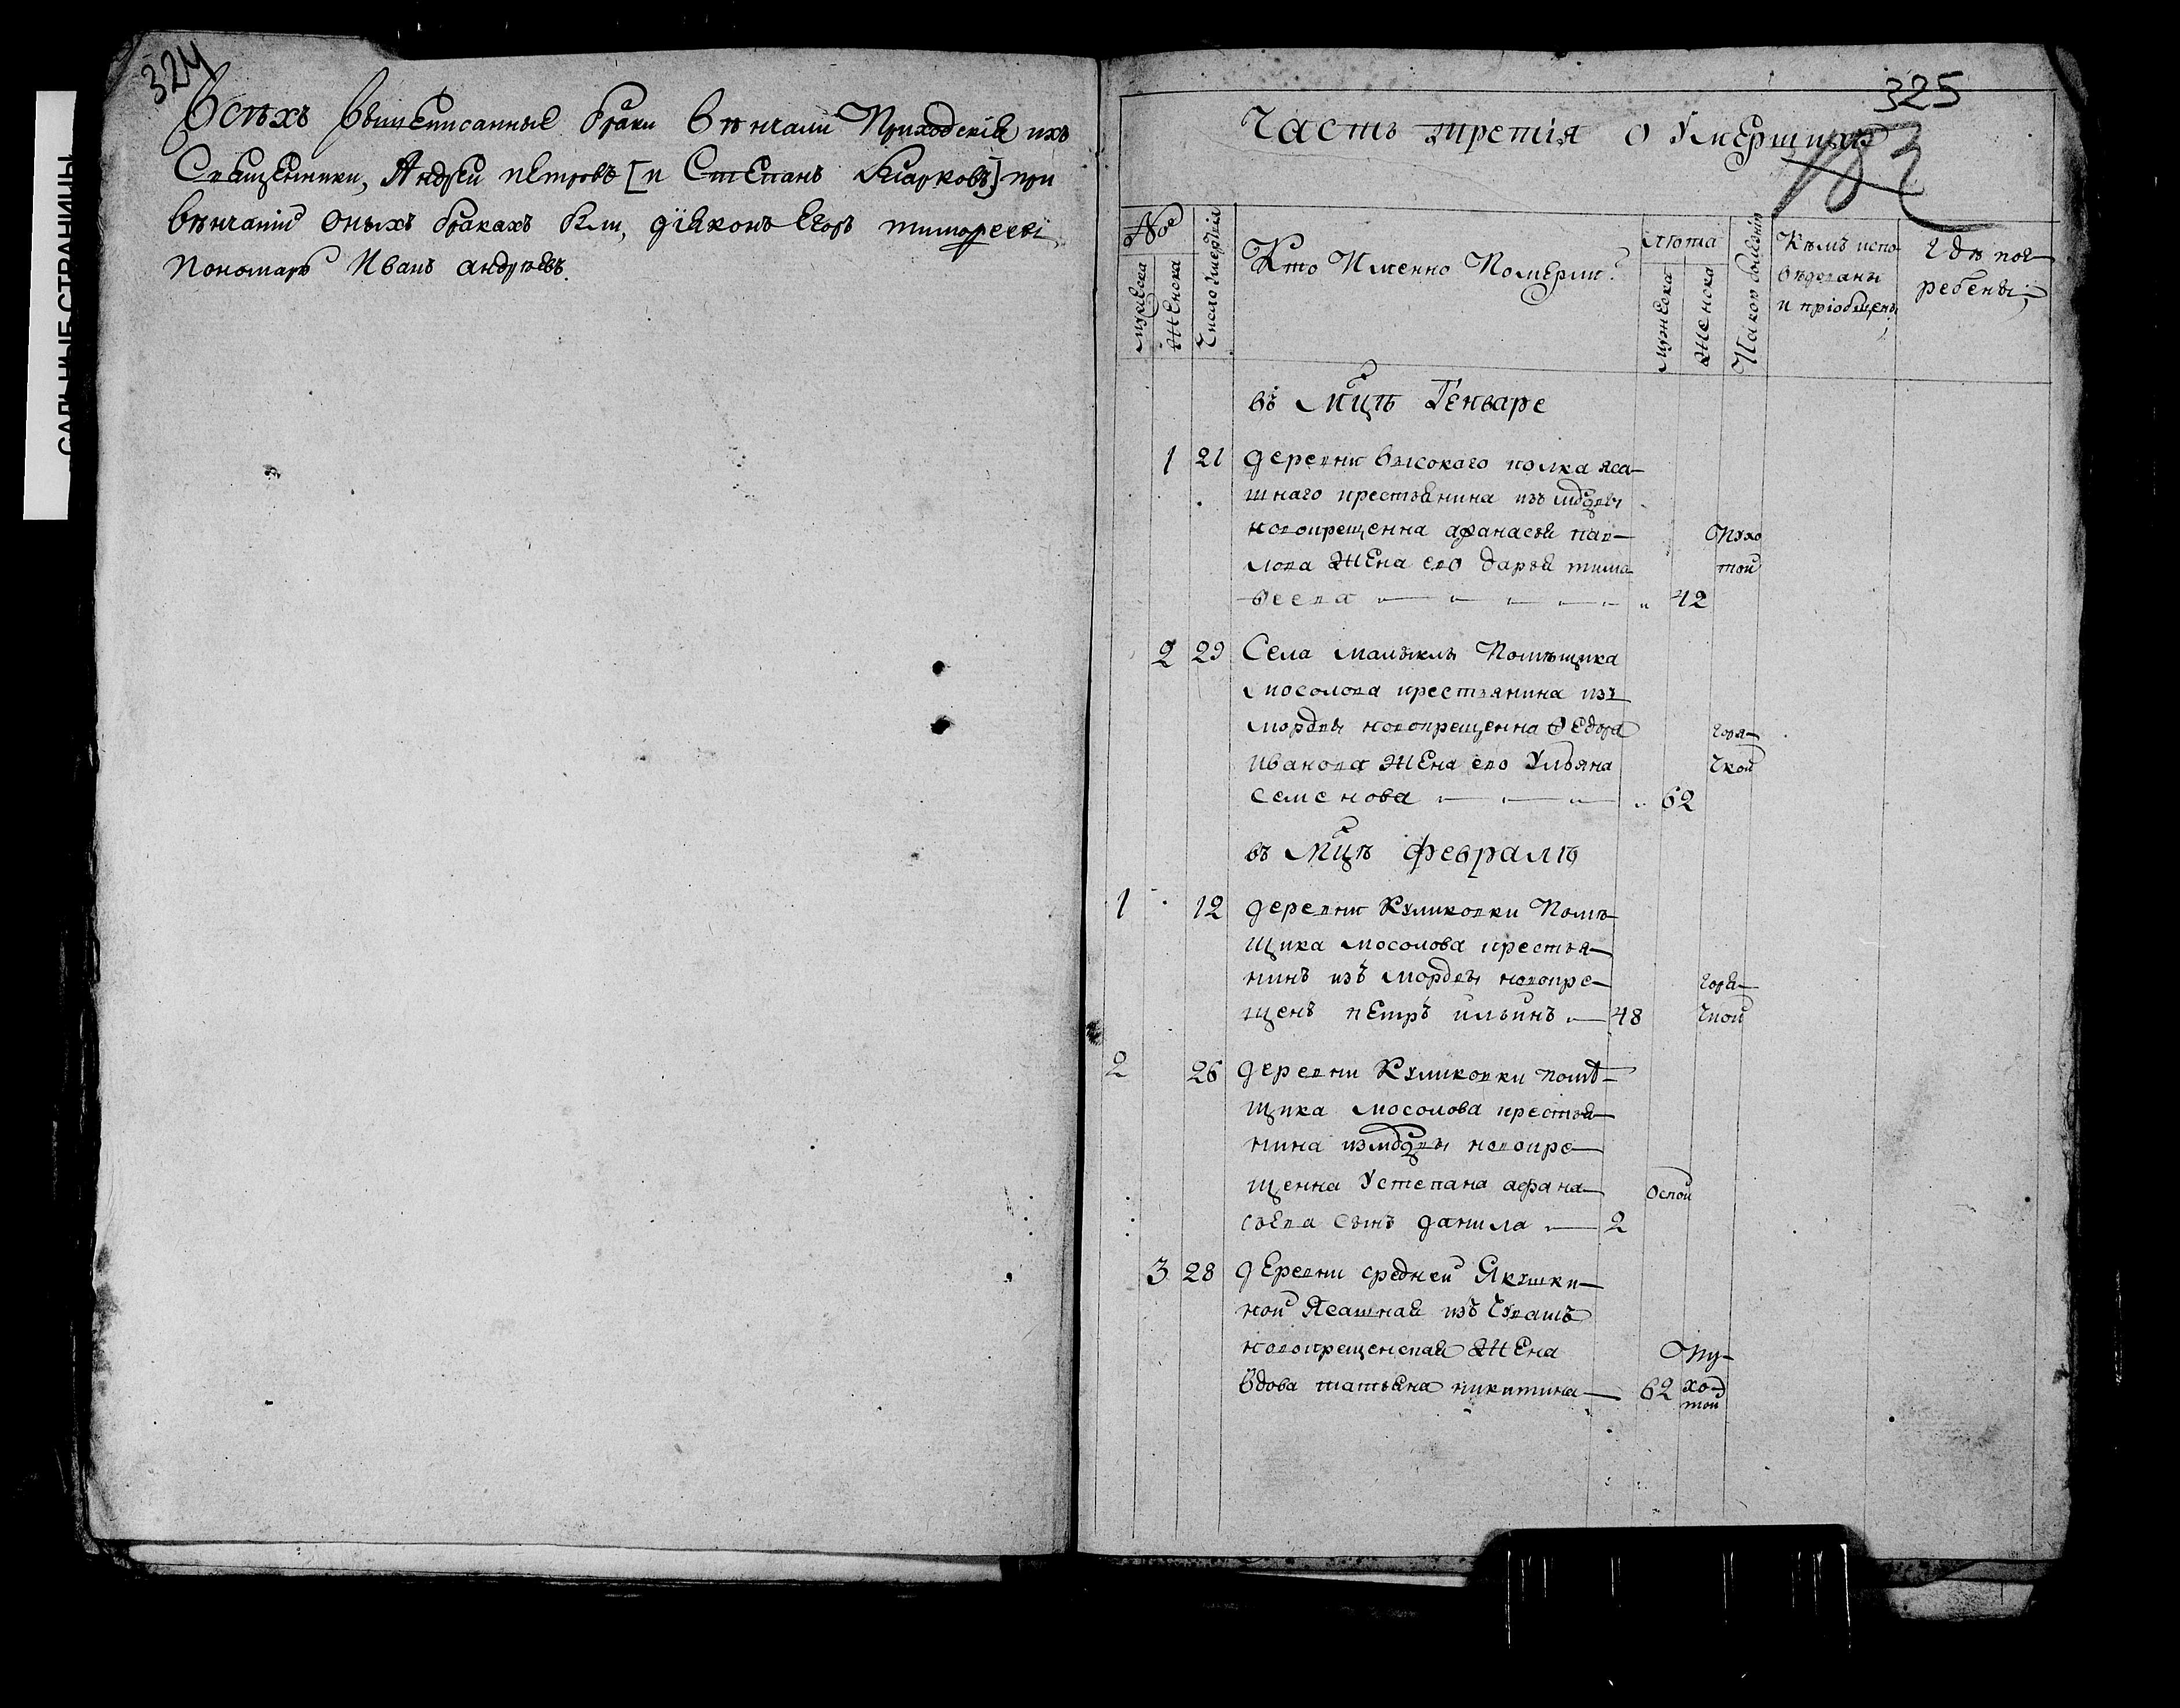 324
Всѣхъ вышеписанные браки вѣнчали Приходскія ихъ
Священники, Андрей петровъ [и Степанъ Марковъ] при
вѣнчаніи оныхъ бракахъ были, діаконъ Егоръ тимофеевъ
Пономарь Иванъ андрѣевъ.
САЛЬНЫЕ СТРАНИЦЫ
325
Часть третія о умершихъ
183
№
мужеска
Женска
Число умертвія
Кто Именно Померли:
лѣта
мужеска
Женска
Какою болѣзнію
Кѣмъ испо-
вѣдованы
и пріобщены;
Гдѣ пог-
ребены;
въ Мцѣ Генваре
1 21 деревни высокаго колка яса-
шнаго крестьянина изъ мордвы
новокрещенна афанасья пав- Опухо
лова Жена его дарья тимо- тои
веева " 42
2 29 Села малыклы Помѣщика
мосолова крестьянина изъ
мордвы новокрещенна Ѳедора горя-
Иванова Жена его Ульяна чкой
семенова " 62
въ Мцѣ февралѣ
1 12 деревни Куликовки Помѣ-
щика мосолова крестья-
нинъ изъ мордвы новокре- горя-
щенъ петръ ильинъ 48 чкой
2 26 деревни Куликовки помѣ-
щика мосолова крестья-
нина измордвы новокре-
щенна Устепана афана- оспой
сьева сынъ данила 2
3 28 деревни средней Якушки-
ной Ясашная изъ Чувашъ
новокрещенская Жена Опу-
вдова татьяна никитина 62 хо-
той